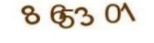 8 653 01